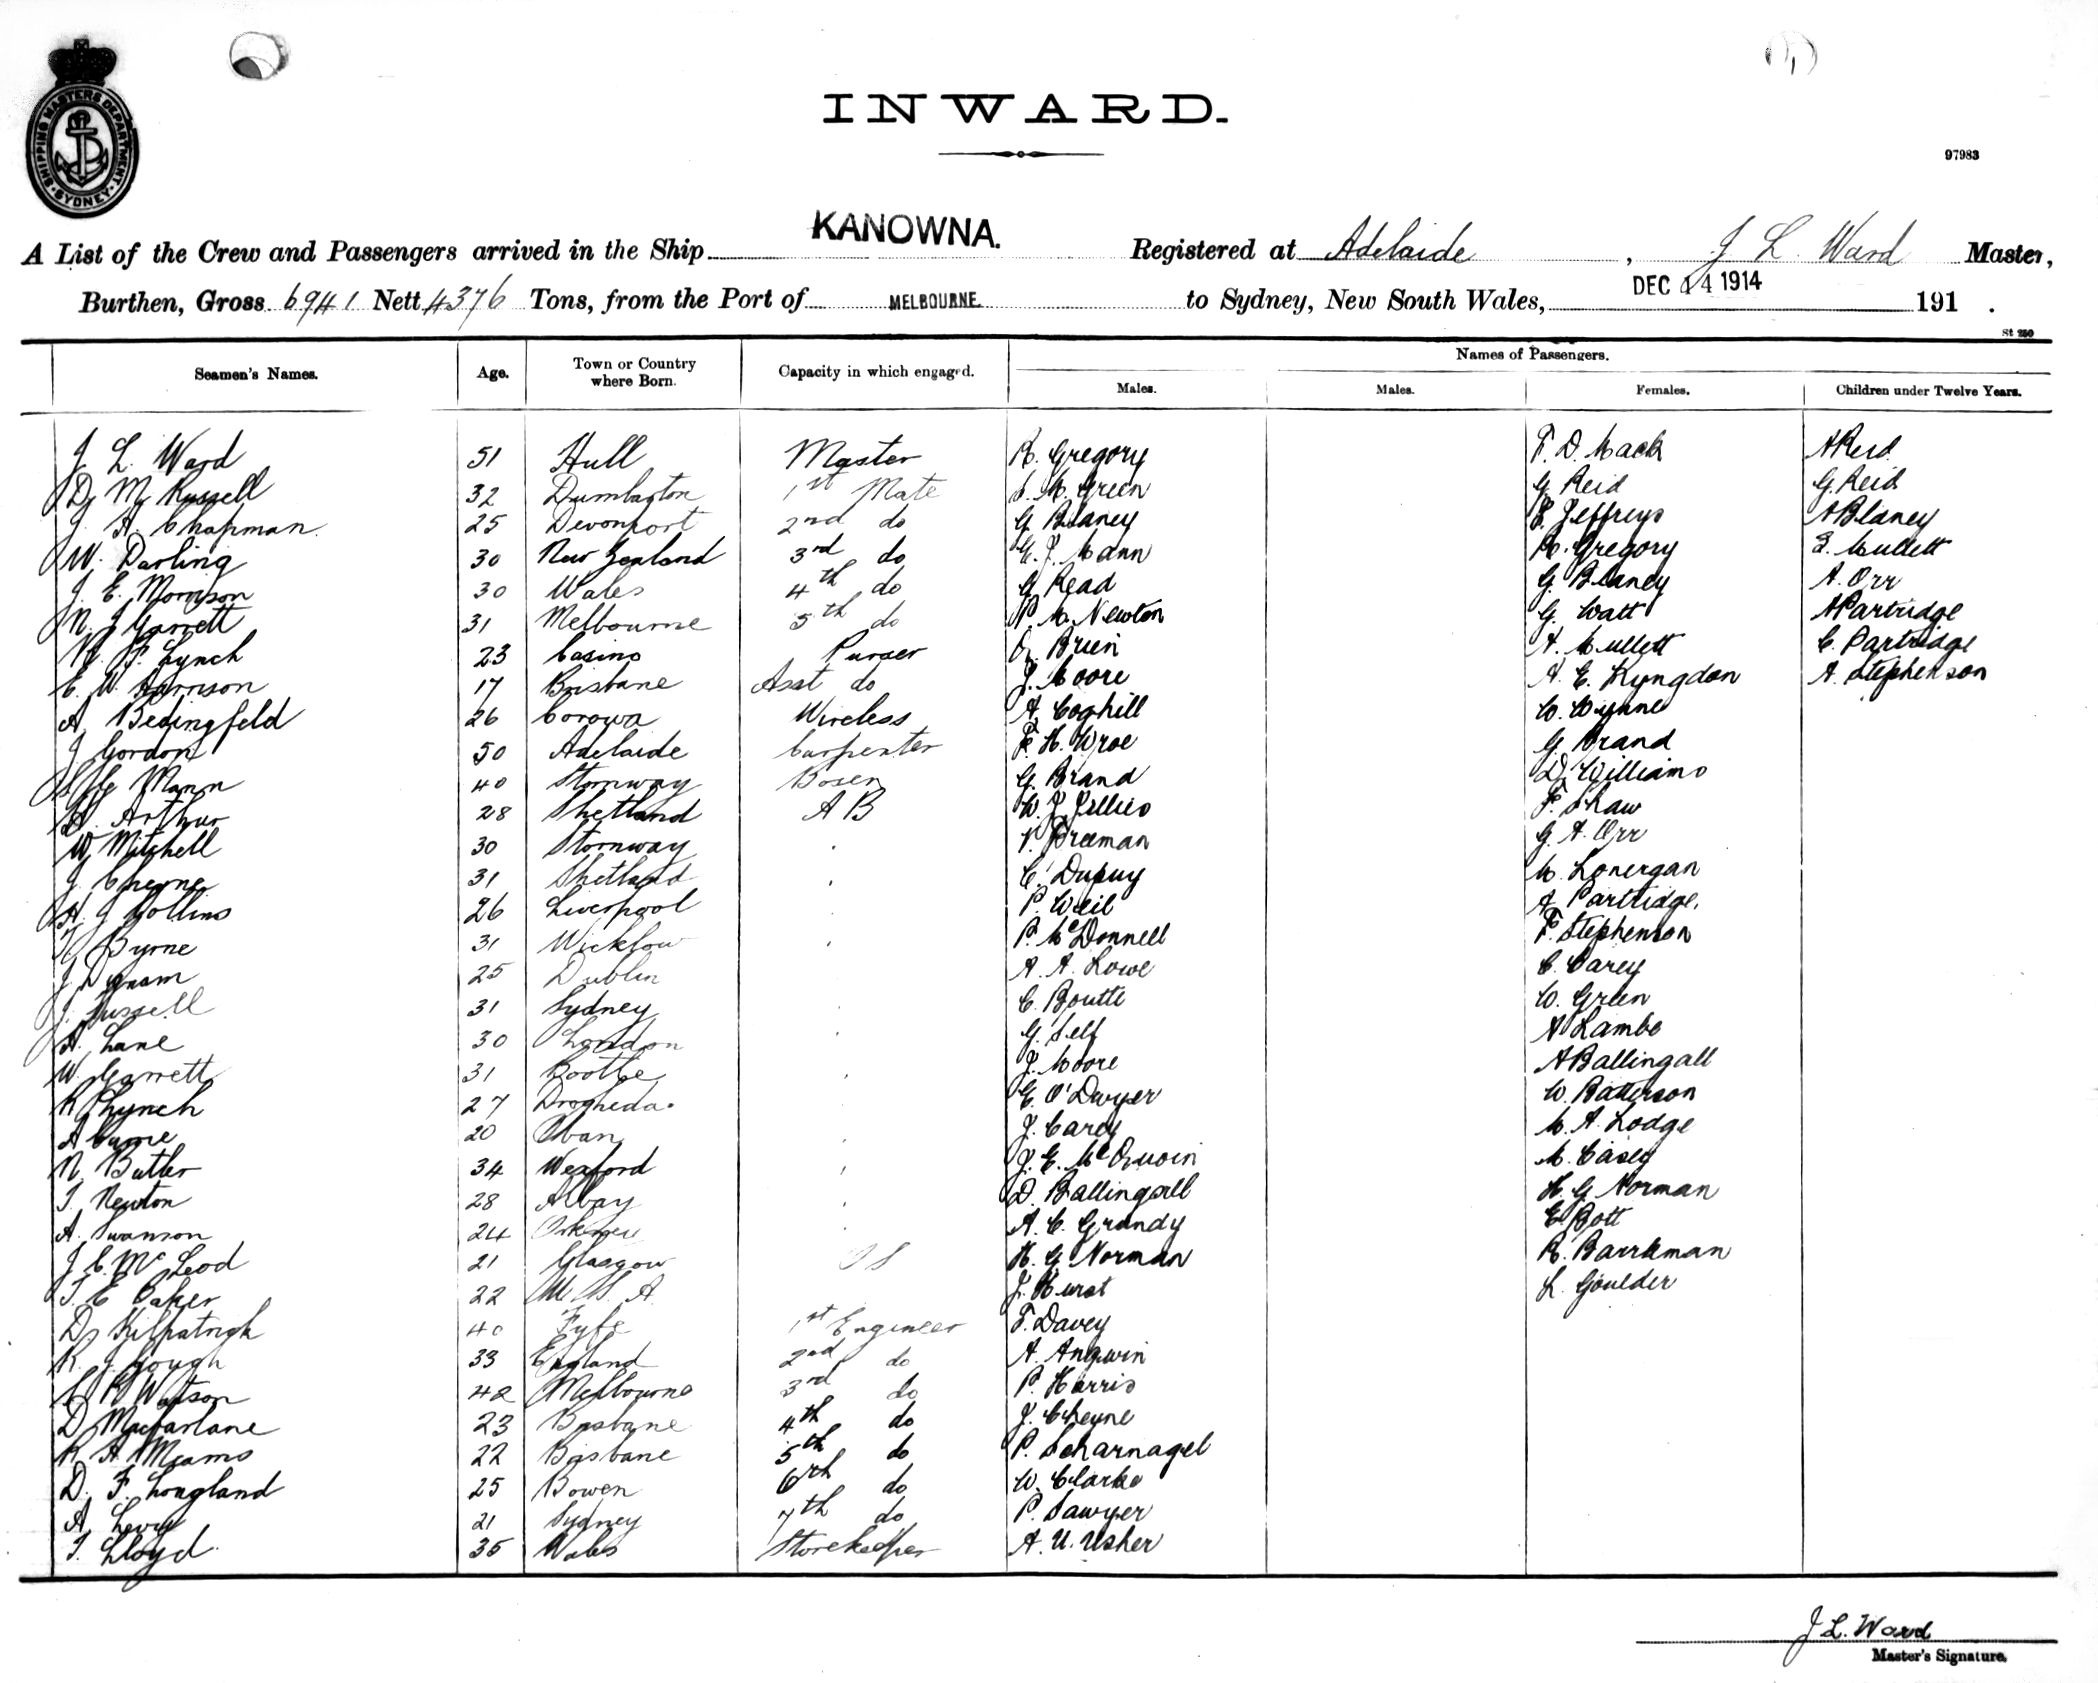 SHIPPING MASTERS DEPARTMENT · SYDNEY ·
INWARD.
97983
A List of the Crew and Passengers arrived in the Ship KANOWNA. Registered at Adelaide, J L Ward Master,
Burthen, Gross 6941 Nett 4376 Tons, from the Port of MELBOURNE. to Sydney, New South Wales, DEC 1914 191 .
St 250
Names of Passengers.
Seamen's Names. Age. Town or Country where Born. Capacity in which engaged. Males. Males. Females. Children under Twelve Years.
J L Ward 51 Hull Master R. Gregory F. D. Mack A Reid
Russell 32 Dumbarton 1st Mate M. Green G Reid G. Reid
J A. Chapman. 25 Devonport 2nd do G Blaney E. Jeffreys A Blaney
W. Darling 30 New Zealand 3rd do E. J. Mann R. Gregory E. Mullett
J. E. Morrison 30 Wales 4th do G Read G Blaney A. Orr
N. J Garrett 31 Melbourne 5th do P. M. Newton G. Watt A Partridge
F. Lynch 23 Casino Purser Brien A. Mullett C. Partridge
E. W. Harrison 17 Brisbane Asst do J. Moore A. E. Kyngdon A. Stephenson
A. Bedingfeld 26 Corowa Wireless A. Coghill W. Wynne
J Gordon 50 Adelaide Carpenter F. H. Wroe G Brand
Mann 40 Stornway Bosen G. Brand D. Williams
A. Arthur 28 Shetland A B W. J. Jillies F. Shaw
W Mitchell 30 Stornway V. Freeman G. A. Orr
J. Cheyne 31 Shetland C. Dupuy M. Lonergan
A. J Collins 26 Liverpool P. Weil A Partridge.
Byrne 31 Wicklow P. McDonnell F. Stephenson
J Dignam 25 Dublin A. A. Lowe C. Carey
J. Russell 31 Sydney C. Boutte W. Green
A. Lane 30 London G. Self A Lambe
W. Garrett 31 Bootle J. Moore A Ballingall
Lynch 27 Drogheda. E. O'Dwyer W. Batterson
A 20 Oban J. Carey M. A. Lodge
N. Butler 34 Wexford J. E. McQuoin M. Casey
T. Newton 28 Albay D. Ballingall H. G Norman
A. Swanson 24 A. C. Grundy E. Bott
J C. McLeod 21 Glasgow O S H. G Norman R. Barrkman
T E Baker 22 U. S. A. J. Hurst L. Goulder
D Kilpatrick 40 Fyfe 1st Engineer F. Davey
R. J. Gough 33 England 2nd do A. Angwin
Watson 42 Melbourne 3rd do P. Harris
D Macfarlane 23 Brisbane 4th do J. Cheyne
R A Mearns 22 Brisbane 5th do P. Scharnagel
D. F. Longland 25 Bowen 6th do W. Clarke
A Levy 21 Sydney 7th do P. Sawyer
T. Lloyd. 35 Wales Storekeeper A. U. Usher
J L. Ward
Master's Signature.